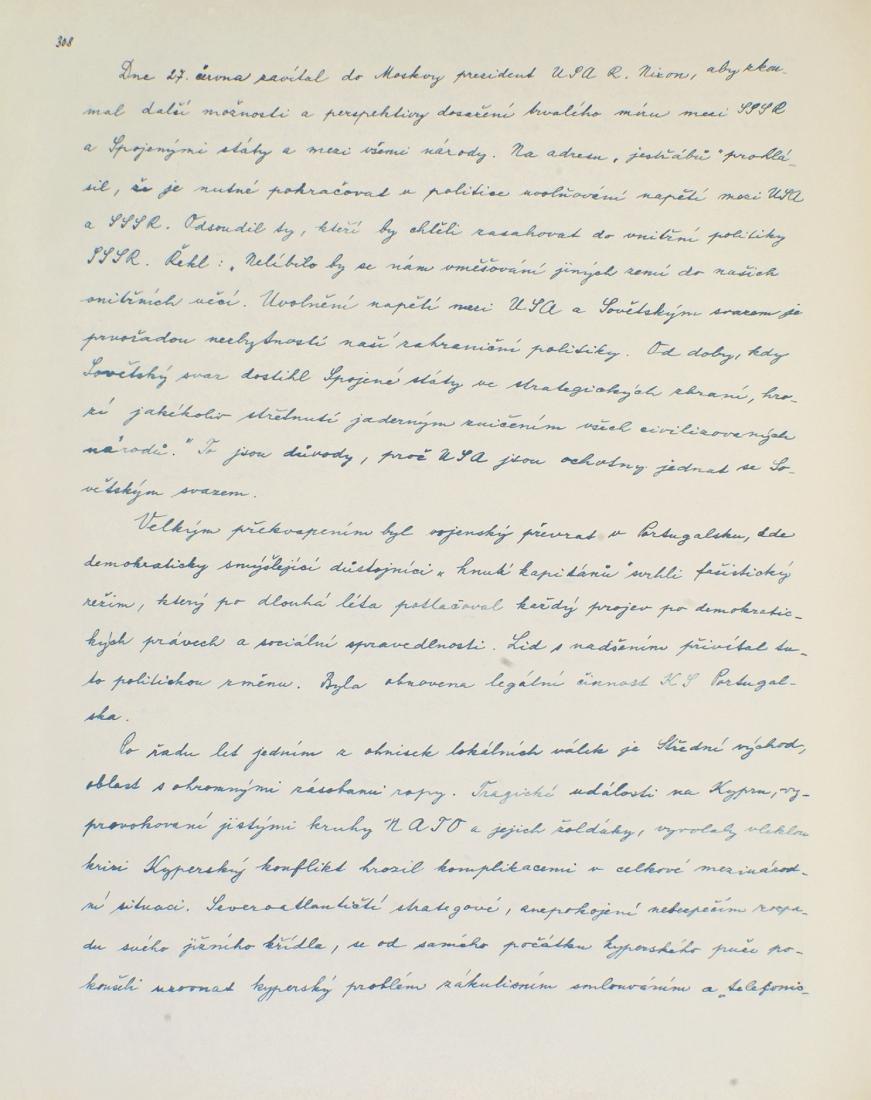 308
Dne 27. června zavítal do Moskvy president USA R. Nixon, aby zkou-
mal další možnosti a perspektivy dosažení trvalého míru mezi SSSR
a Spojenými státy a mezi všemi národy. Na adresu „jestřábů" prohlá-
sil, že je nutné pokračovat v politice uvolňování napětí mezi USA
a SSSR. Odsoudil ty, kteří by chtěli zasahovat do vnitřní politiky
SSSR. Řekl: „Nelíbilo by se nám vměšování jiných zemí do našich
vnitřních věcí. Uvolnění napětí mezi USA a Sovětským svazem je
prvořadou nezbytností naší zahraniční politiky. Od doby, kdy
Sovětský svaz dostihl Spojené státy ve strategických zbraní, hro-
zí jakékoliv střetnutí jaderným zničením všech civilizovaných
národů." To jsou důvody, proč USA jsou ochotny jednat se So-
větským svazem.
Velkým překvapením byl vojenský převrat v Portugalsku, kde
demokraticky smýšlející důstojníci „hnutí kapitánů" svrhli fašistický
režim, který po dlouhá léta potlačoval každý projev po demokratic-
kých právech a sociální spravedlnosti. Lid s nadšením přivítal tu-
to politickou změnu. Byla obnovena legální činnost KS Portugal-
ska.
Po řadu let jedním z ohnisek lokálních válek je Střední východ,
oblast s ohromnými zásobami ropy. Tragické události na Kypru, vy-
provokovaní jistými kruhy NATO a jejich žoldáky, vyvolaly vleklou
krizi Kyperský konflikt hrozil komplikacemi v celkové mezinárod-
ní situaci. Severoatlantičtí strategové, znepokojení nebezpečím rozpa-
du svého jižního křídla, se od samého počátku kyperského puče po-
koušeli urovnat kyperský problém zákulisním smlouváním a „telefonic-